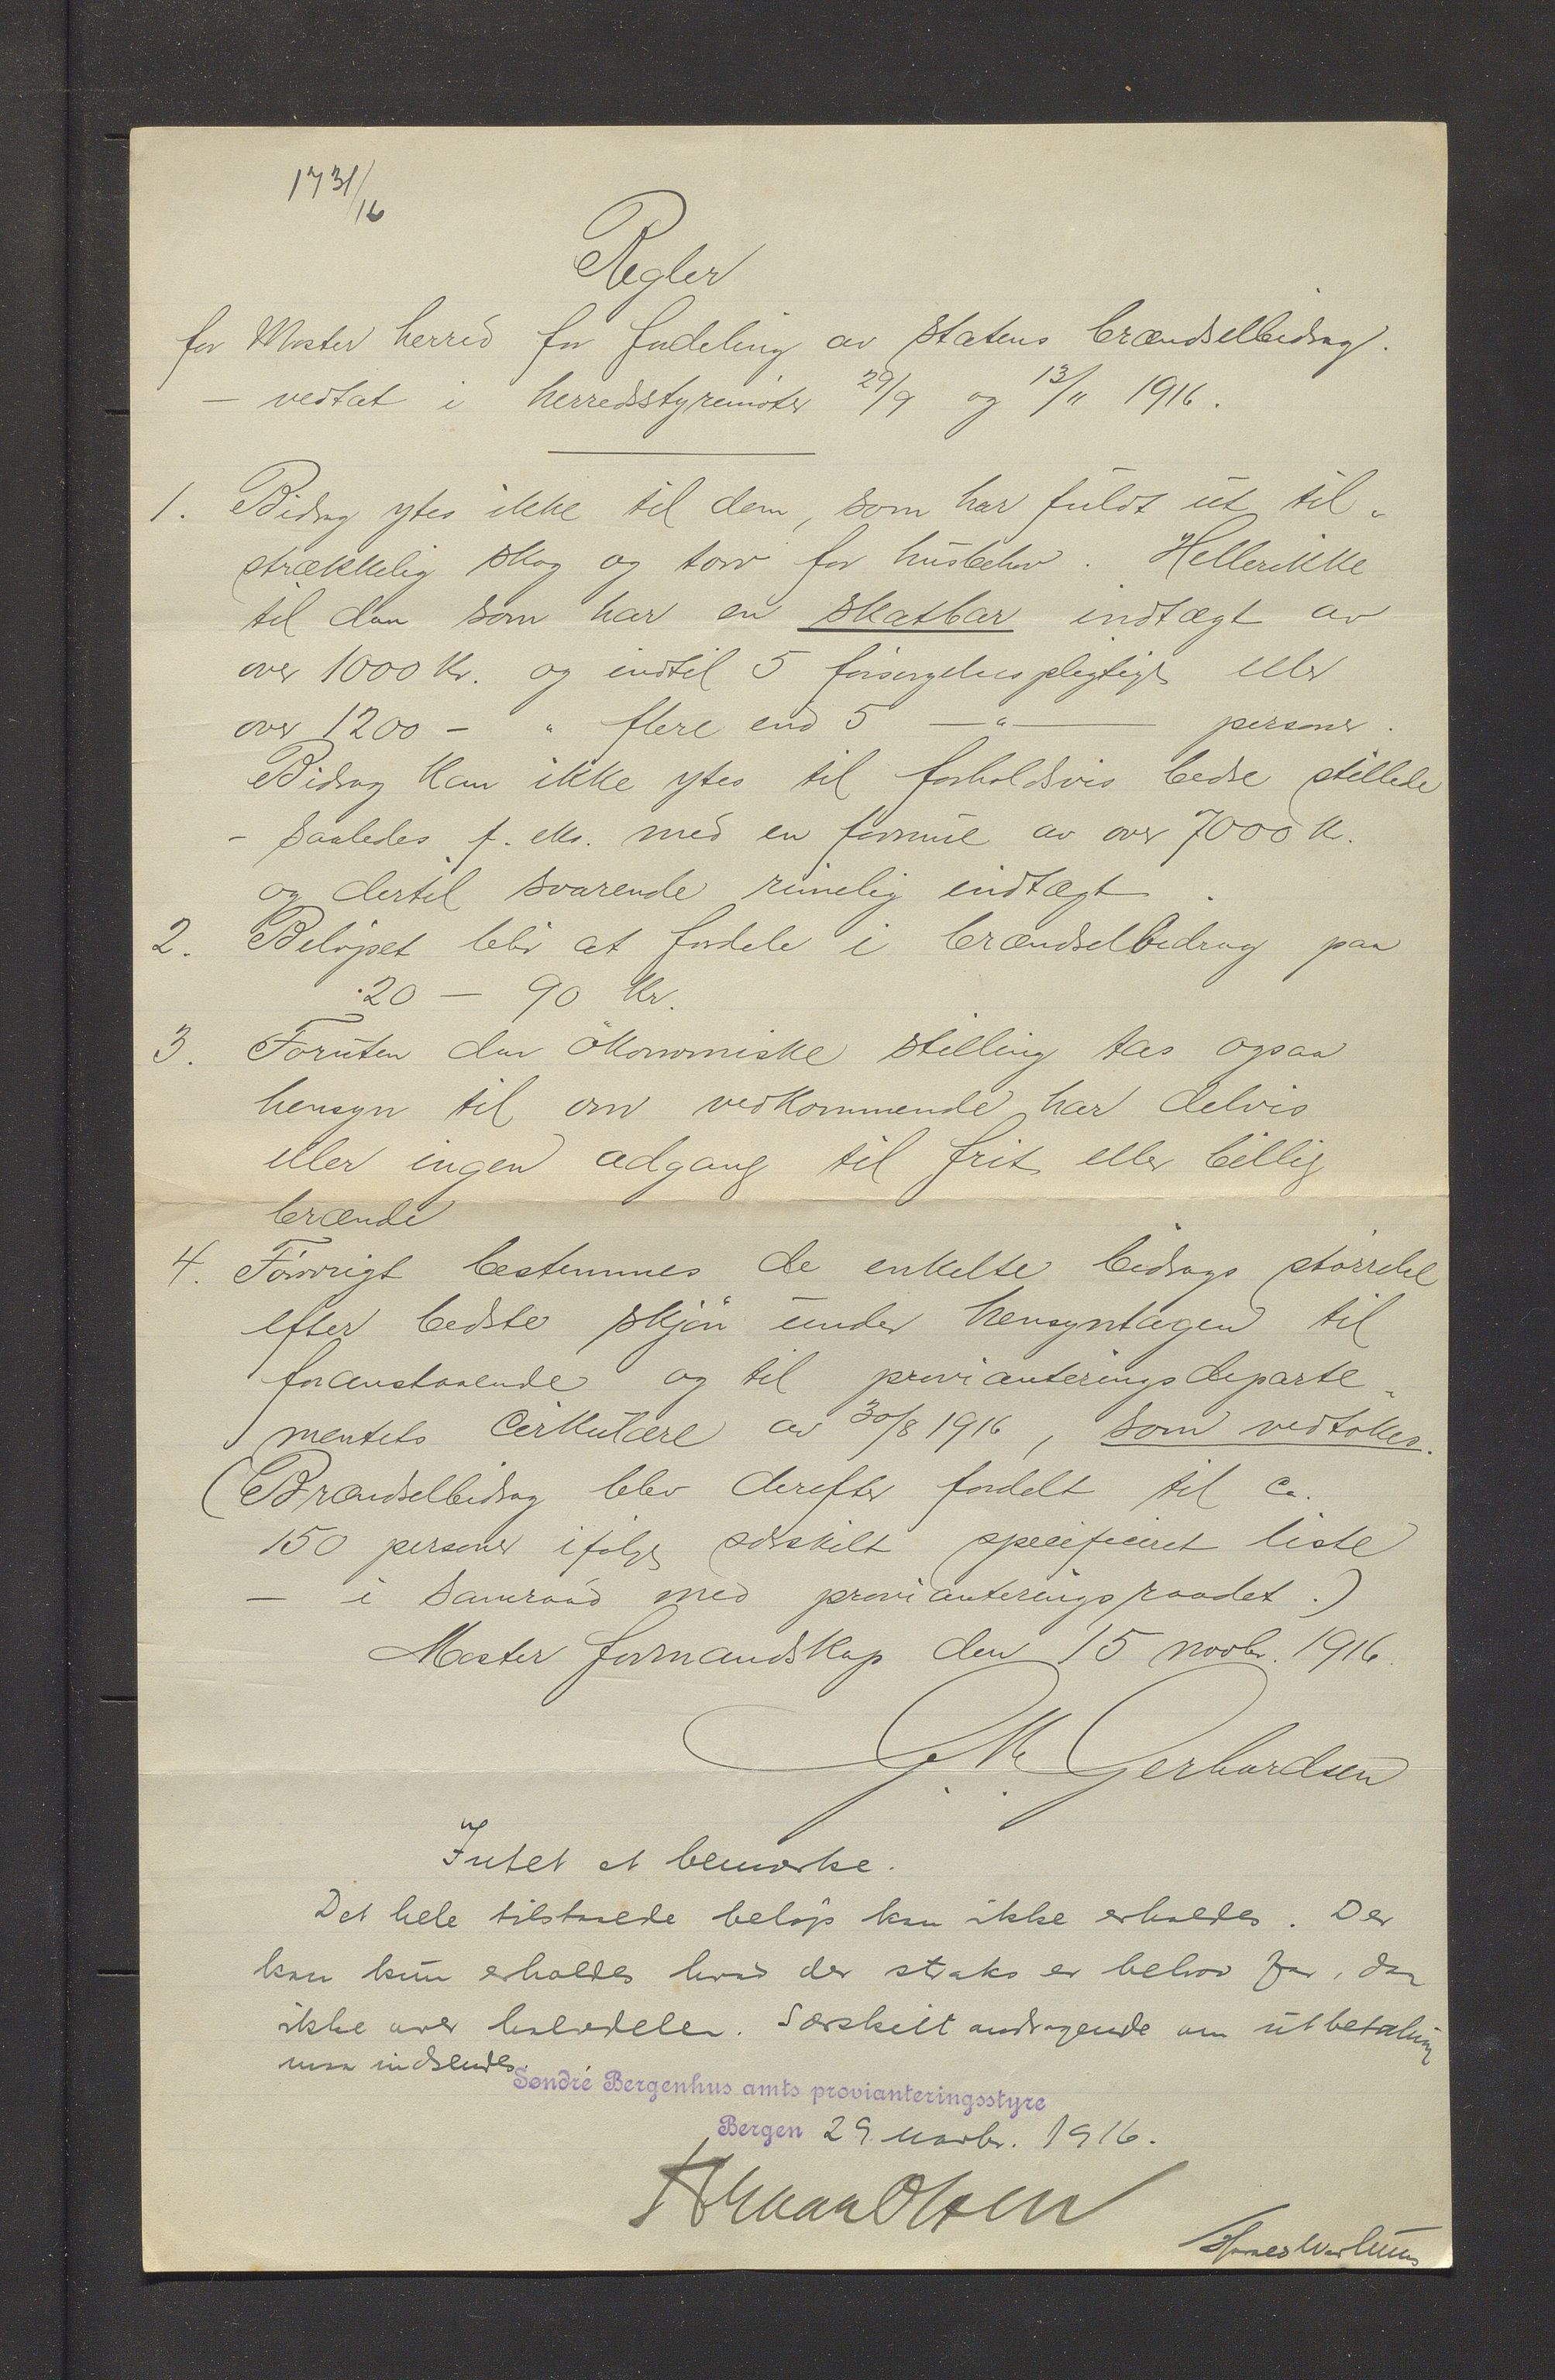 1731/16
Regler
for Moster herred for fordeling av statens brændselbidrag.
– vedtat i herredsstyremöter 29/9 og 13/11 1916.
1. Bidrag ytes ikke til dem, som har fuldt ut til„
strækkelig skog og torv for husbehov. Hellerikke
til dem som har en skatbar indtægt av
over 1000 Kr. og indtil 5 forsörgelsespligtige eller
over 1200 – „ flere end 5 —„— personer.
Bidrag kan ikke ytes til forholdsvis bedre stillede
– saaledes f. eks. med en formue av over 7000 Kr.
og dertil svarende rimelig indtægt.
2. Belöpet blir at fordele i brændselbidrag paa
20 — 90 Kr.
3. Foruten den ökonomiske stilling tas ogsaa
hensyn til om vedkommende har delvis
eller ingen adgang til frit eller billig
brænde
4. Forövrigt bestemmes de enkelte bidrags störrelse
efter bedste skjön under hensyntagen til
foranstaaende og til provianteringsdeparte„
mentets cirkulære av 30/8 1916, som vedtokes.
(Brændselbidrag blev derefter fordelt til ca.
150 personer ifölge særskilt specificeret liste
— i samraad med provianteringsraadet.)
Moster formandskap den 15 novbr. 1916.
G. M. Gerhardsen
Intet at bemerke.
Det hele tilstaaede belöp kan ikke erholdes. Der
kan kun erholdes hvad der straks er behov for, dog
ikke over halvdelen. Særskilt andragende om utbetaling
maa indsendes.
Søndre Bergenhus amts provianteringsstyre
Bergen 29. novbr. 1916.